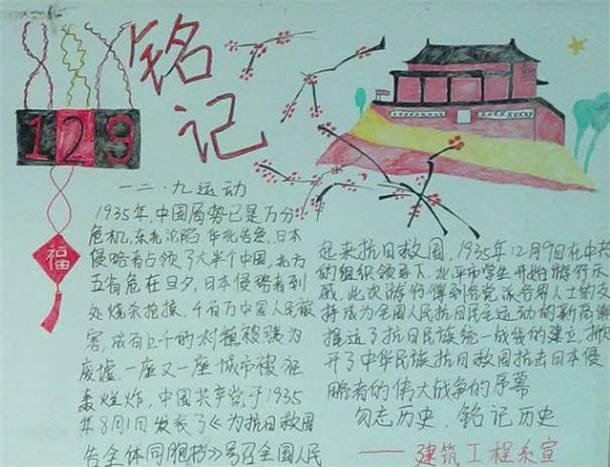 铭记
129
福
一二·九运动
1935年,中国局势已是万分
危机,东北沦陷,华北告急,日本
侵略者占领了大半个中国,北方
五省危在旦夕,日本侵略者到
处烧杀抢掠,千百万中国人民被
害,成百上千的村镇被残为
废墟,一座又一座城市被
轰炸,中国共产党于1935
年8月1日发表了《为抗日救国
告全体同胞书》号召全国人民
起来抗日救国,1935年12月9日在中共
的组织领导下,北平市学生开始游行示
威,此次游行得到各党派各界人士的支
持成为全国人民抗日民主运动的新高潮
推近了抗日民族统一战线的建立,掀
开了中华民族抗日救国抗击日本侵
略者的伟大战争的序幕
勿忘历史,铭记历史
——建筑工程系宣